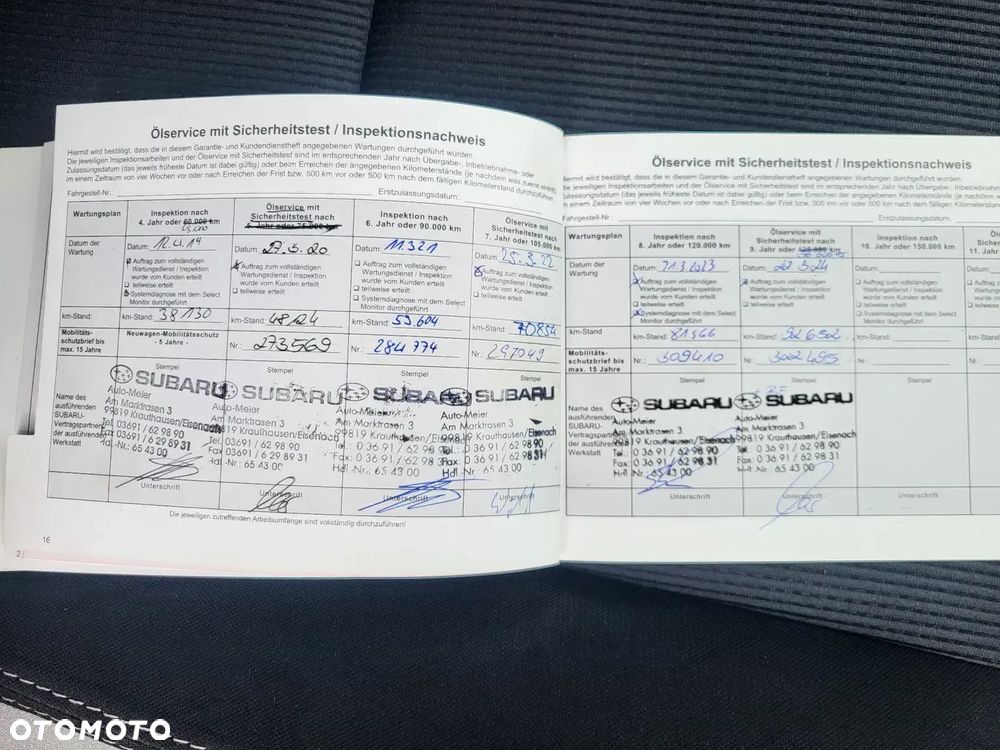 Ölservice mit Sicherheitstest / Inspektionsnachweis
Hiermit wird bestätigt, dass die in diesem Garantie- und Kundendienstheft angegebenen Wartungen durchgeführt wurden.
Die jeweiligen Inspektionsarbeiten und der Ölservice mit Sicherheitstest sind im entsprechenden Jahr nach Übergabe-, Inbetriebnahme- oder
Zulassungsdatum (das jeweils früheste Datum ist dabei gültig) oder beim Erreichen der angegebenen Kilometerstände (je nachdem was zuerst eintritt)
in einem Zeitraum von vier Wochen vor oder nach Erreichen der Frist bzw. 500 km vor oder 500 km nach dem fälligen Kilometerstand durchzuführen.
Fahrgestell-Nr.: Erstzulassungsdatum:
Wartungsplan
Inspektion nach
4. Jahr oder 60.000 km
Ölservice mit
Sicherheitstest nach
5. Jahr oder 75.000 km
Inspektion nach
6. Jahr oder 90.000 km
Ölservice mit
Sicherheitstest nach
7. Jahr oder 105.000 km
Datum der
Wartung
Datum:
Auftrag zum vollständigen
Wartungsdienst / Inspektion
wurde vom Kunden erteilt
teilweise erteilt
Systemdiagnose mit dem Select
Monitor durchgeführt
Datum: 27.3.20
Auftrag zum vollständigen
Wartungsdienst / Inspektion
wurde vom Kunden erteilt
teilweise erteilt
Datum: 11.3.21
Auftrag zum vollständigen
Wartungsdienst / Inspektion
wurde vom Kunden erteilt
teilweise erteilt
Systemdiagnose mit dem Select
Monitor durchgeführt
Datum: 25.3.22
Auftrag zum vollständigen
Wartungsdienst / Inspektion
wurde vom Kunden erteilt
teilweise erteilt
km-Stand: 38 130
km-Stand: 48124
km-Stand: 59.604
km-Stand: 70854
Mobilitäts-
schutzbrief bis
max. 15 Jahre
Neuwagen-Mobilitätsschutz
- 5 Jahre -
Nr.: 273569
Nr.: 284 774
Nr.: 297049
Name des
ausführenden
SUBARU-
Vertragspartners
der ausführenden
Werkstatt
Stempel
SUBARU
Auto-Meier
Am Marktrasen 3
99819 Krauthausen/Eisenach
Tel. 03691 / 62 98 90
Fax 03691 / 6 29 89 31
Hdl.-Nr.: 65 43 00
Unterschrift
Stempel
SUBARU
Auto-Meier
Am Marktrasen 3
99819 Krauthausen/Eisenach
Tel. 03691 / 62 98 90
Fax 03691 / 6 29 89 31
Hdl.-Nr.: 65 43 00
Unterschrift
Stempel
SUBARU
Auto-Meier
Am Marktrasen 3
99819 Krauthausen/Eisenach
Tel.: 0 36 91 / 62 98 90
Fax: 0 36 91 / 62 98 31
Hdl-Nr.: 65 43 00
Unterschrift
Stempel
SUBARU
Auto-Meier
Am Marktrasen 3
99819 Krauthausen/Eisenach
Tel.: 0 36 91 / 62 98 90
Fax: 0 36 91 / 62 98 31
Hdl-Nr.: 65 43 00
Unterschrift
Die jeweiligen zutreffenden Arbeitsumfänge sind vollständig durchzuführen!
16
2
Ölservice mit Sicherheitstest / Inspektionsnachweis
iermit wird bestätigt, dass die in diesem Garantie- und Kundendienstheft angegebenen Wartungen durchgeführt wurden.
ie jeweiligen Inspektionsarbeiten und der Ölservice mit Sicherheitstest sind im entsprechenden Jahr nach Übergabe-, Inbetriebnahme-
ulassungsdatum (das jeweils früheste Datum ist dabei gültig) oder beim Erreichen der angegebenen Kilometerstände (je nachdem w
einem Zeitraum von vier Wochen vor oder nach Erreichen der Frist bzw. 500 km vor oder 500 km nach dem fälligen Kilometerstand
Fahrgestell-Nr.: Erstzulassungsdatum:
Wartungsplan
Inspektion nach
8. Jahr oder 120.000 km
Ölservice mit
Sicherheitstest nach
9. Jahr oder
Inspektion nach
10. Jahr oder 150.000 km
Öls
Sicherh
11. Jahr
Datum der
Wartung
Datum:
Auftrag zum vollständigen
Wartungsdienst / Inspektion
wurde vom Kunden erteilt
teilweise erteilt
Systemdiagnose mit dem Select
Monitor durchgeführt
Datum:
Auftrag zum vollständigen
Wartungsdienst / Inspektion
wurde vom Kunden erteilt
teilweise erteilt
Datum:
Auftrag zum vollständigen
Wartungsdienst / Inspektion
wurde vom Kunden erteilt
teilweise erteilt
Systemdiagnose mit dem Select
Monitor durchgeführt
km-Stand
km-Stand:
km-Stand: 92 652
km-Stand:
Mobilitäts-
schutzbrief bis
max. 15 Jahre
Nr.: 309410
Nr.:
Nr.:
Name des
ausführenden
SUBARU-
Vertragspartners
der ausführenden
Werkstatt
Stempel
SUBARU
Auto-Meier
Am Marktrasen 3
99819 Krauthausen/Eisenach
Tel.: 0 36 91 / 62 98 90
Fax: 0 36 91 / 62 98 31
Hdl-Nr. 65 43 00
Unterschrift
Stempel
SUBARU
Auto-Meier
Am Marktrasen 3
99819 Krauthausen/Eisenach
Tel.: 0 36 91 / 62 98 90
Fax: 0 36 91 / 62 98 31
Hdl-Nr: 65 43 00
Unterschrift
Stempel
Unterschrift
OTOMOTO